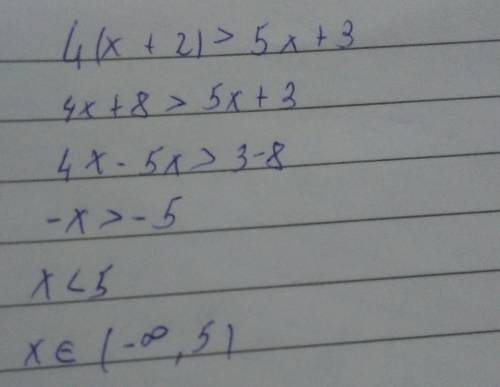 4(x + 2) > 5x + 3
4x + 8 > 5x + 3
4x - 5x > 3 - 8
-x > -5
x < 5
x ∈ (-∞, 5)